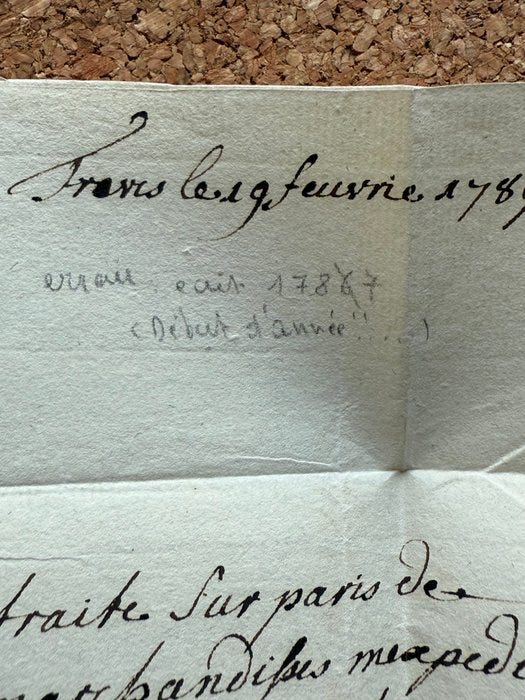 le 19 feuvrie 178
erreur. ecrit 1786 7
(Début d'année!!...)
traite sur paris de
marchandises mexpedi